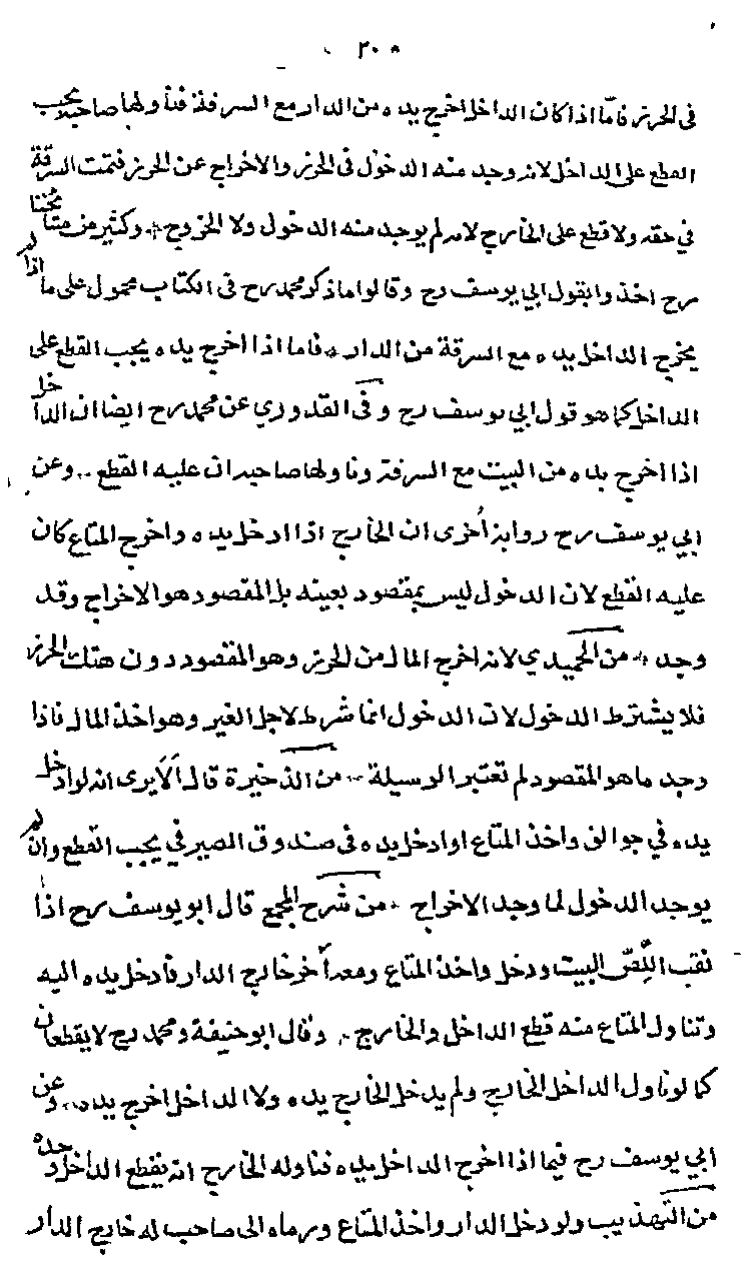 ٣٠
في الحرز فاما اذا كان الداخل اخرج يده من الدار مع السرقة فناولها صاحبه يجب
القطع على الداخل لانه وجد منه الدخول في الحرز والاخراج عن الحرز فتمت السرقة
في حقه ولا قطع على الخارج لانه لم يوجد منه الدخول ولا الخروج وكثير من مشايخنا
رح اخذوا بقول ابي يوسف رح وقالوا ما ذكر محمد رح في الكتاب محمول على ما اذا لم
يخرج الداخل يده مع السرقة من الدار فاما اذا اخرج يده يجب القطع على
الداخل كما هو قول ابي يوسف رح وفي القدوري عن محمد رح ايضا ان الداخل
اذا اخرج يده من البيت مع السرقة وناولها صاحبه ان عليه القطع وعن
ابي يوسف رح رواية أخرى ان الخارج اذا ادخل يده واخرج المتاع كان
عليه القطع لان الدخول ليس بمقصود بعينه بل المقصود هو الاخراج وقد
وجد من الحميدي لانه اخرج المال من الحرز وهو المقصود دون هتك الحرز
فلا يشترط الدخول لان الدخول انما شرط لاجل الغير وهو اخذ المال فاذا
وجد ما هو المقصود لم تعتبر الوسيلة من الذخيرة قال ألا يرى انه لو ادخل
يده في جوالق واخذ المتاع او ادخل يده في صندوق الصيرفي يجب القطع وان لم
يوجد الدخول لما وجد الاخراج من شرح المجمع قال ابو يوسف رح اذا
نقب اللص البيت ودخل واخذ المتاع ومعه آخر خارج الدار فادخل يده اليه
وتناول المتاع منه قطع الداخل والخارج وقال ابو حنيفة ومحمد رح لا يقطعان
كما لو ناول الداخل الخارج ولم يدخل الخارج يده ولا الداخل اخرج يده وعن
ابي يوسف رح فيما اذا اخرج الداخل يده فناوله الخارج انه يقطع الداخل وحده
من التهذيب ولو دخل الدار واخذ المتاع ورماه الى صاحب له خارج الدار